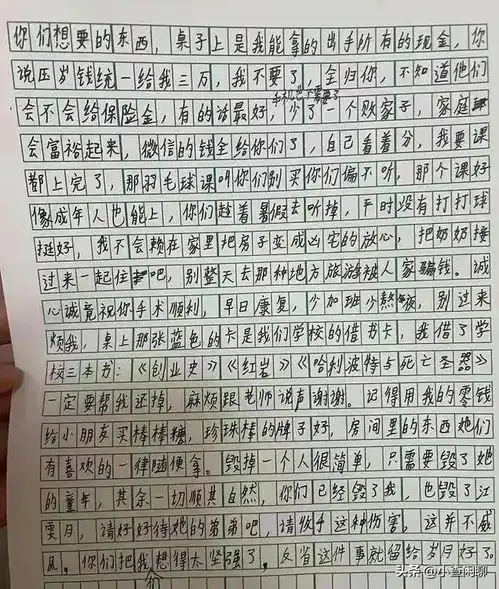 你们想要的东西，桌子上是我能拿的出手所有的现金，你
说压岁钱统一给我三万，我不要了，全归你，不知道他们
会不会给保险金，有的话最好，少了一个败家子，家庭
会富裕起来，微信的钱全给你们了，自己看着分，我要课
都上完了，那羽毛球课叫你们别买你们偏不听，那个课好
像成年人也能上，你们趁着暑假去听掉，平时没有打打球
挺好，我不会赖在家里把房子变成凶宅的放心，把奶奶接
过来一起住吧，别整天去那种地方旅游被人家骗钱。诚
心诚竟祝你手术顺利，早日康复，少加班少熬夜，别过来
烦我，桌上那张蓝色的卡是我们学校的借书卡，我借了学
校三本书：《创业史》《红岩》《哈利波特与死亡圣器》
一定要帮我还掉，麻烦跟老师说声谢谢。记得用我的零钱
给小朋友买棒棒糖，珍珠棒的牌子好，房间里的东西她们
有喜欢的一律随便拿。毁掉一个人很简单，只需要毁了她
的童年，其余一切顺其自然，你们已经毁了我，也毁了江
雯月，请好好待她的弟弟吧，请收手这种伤害。这并不威
风。你们把我想得太坚强了，反省这件事就留给岁月好了。
头条@小查闲聊